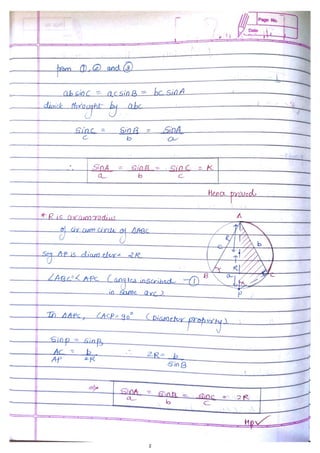 Page No.
Date
from ①, ② and ③
ab sinC = ac sinB = bc sinA
divide throught by abc
sinC/c = sinB/b = sinA/a
∴ SinA/a = SinB/b = SinC/c = K
Hence proved
* R is circumradius
of circumcircle of ΔABC
Seg AP is diameter = 2R
∠ABC = ∠APC (angles inscribed —①
in same arc)
In ΔAPC, ∠ACP = 90° (Diameter property)
sinp = sinB
AC/AP = b/2R ∴ 2R = b/SinB
SinA/a = SinB/b = SinC/c = 2R
Hpv
A
c
b
R
R
B
a
C
P
2